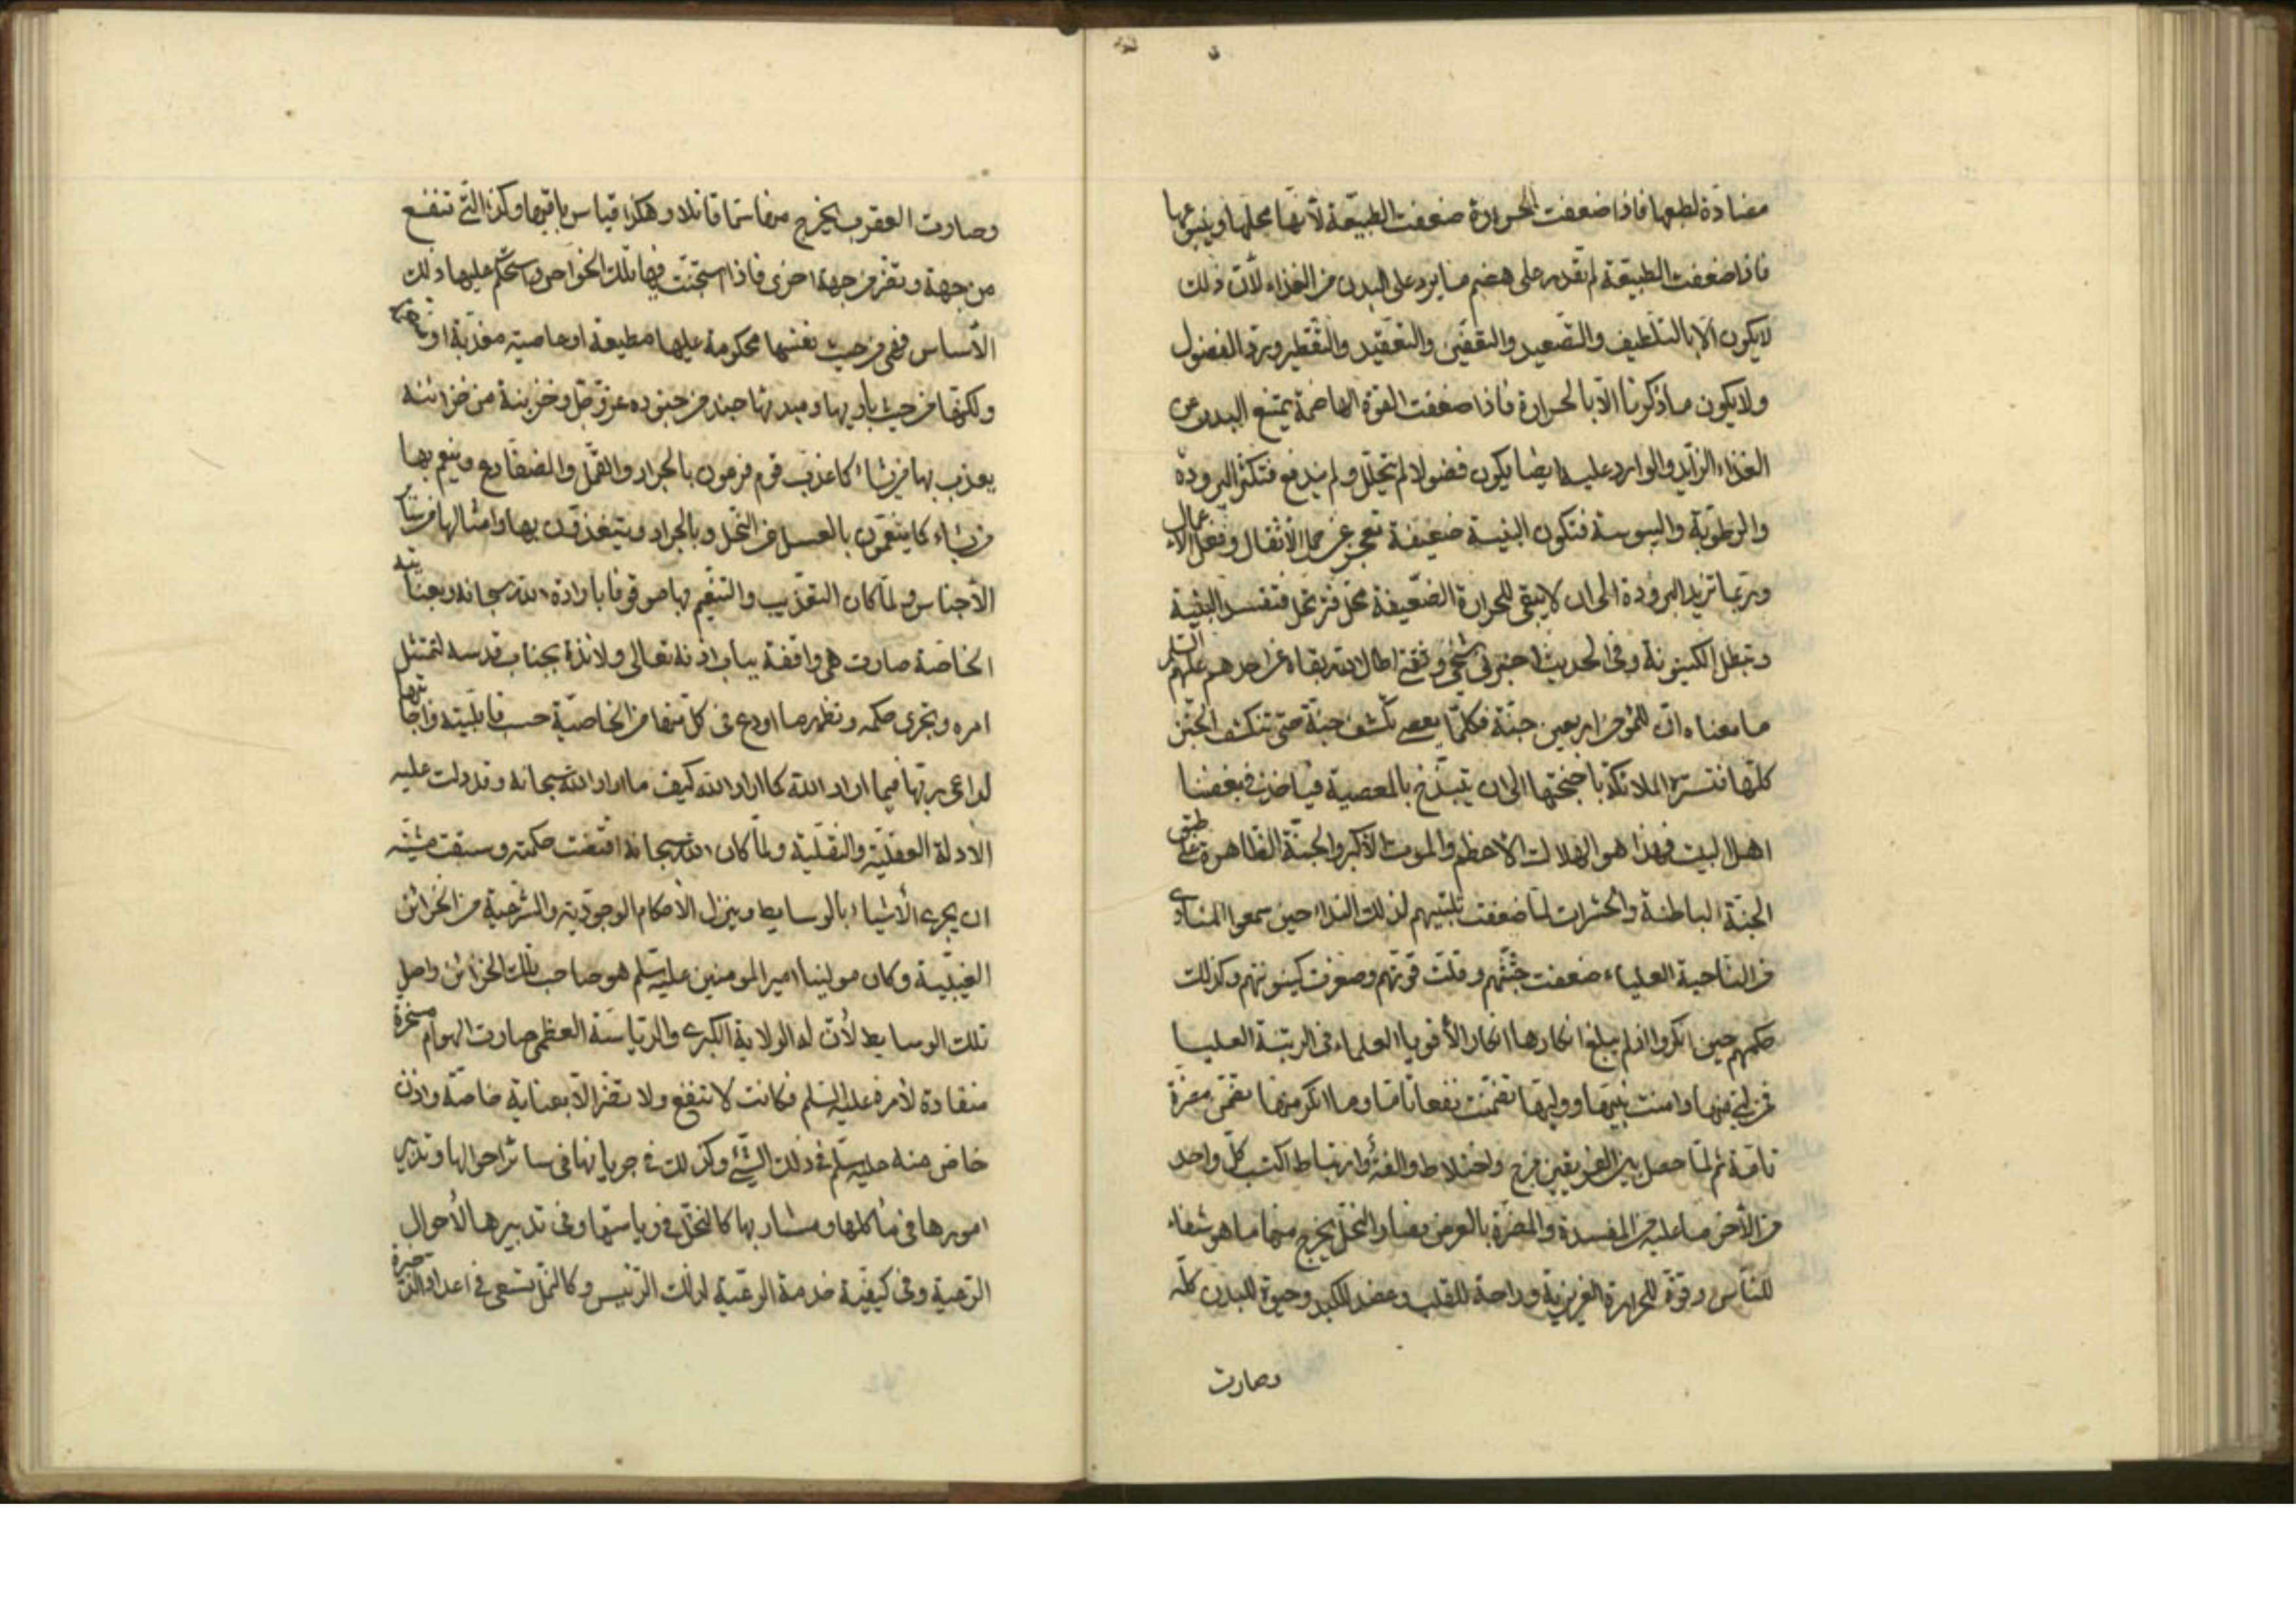 مضادة لطبعها فاذا ضعفت الحرارة ضعفت الطبيعة لأنها محلها وينبوعها
فاذا ضعفت الطبيعة لم تقدر على هضم ما يرد على البدن من الغذاء لأن ذلك
لا يكون الا بالتلطيف والتصعيد والتعفين والتعقيد والتقطير وبرد الفضول
ولا يكون ما ذكرنا الا بالحرارة فاذا ضعفت القوة الهاضمة يمتنع البدن عن
الغذاء الزايد والوارد عليه ايضا يكون فضولا لم يتحلل ولم يندفع فتكثر البرودة
والرطوبة واليبوسة فتكون البنية ضعيفة تعجز عن حمل الأثقال وفعل الأعمال
وربما تزيد البرودة الى ان لا يبقى للحرارة الضعيفة محل فترتحل فتفسد البنية
وتبطل الكينونة وفي الحديث اخبرني شيخي وثقتي اطال الله بقاه عن احدهم عليهم السلم
ما معناه ان للمؤمن اربعين جنة فكلما يعصي تكشف جنة حتى تنكشف الجنن
كلها فتستره الملائكة باجنحتها الى ان يتبذخ بالمعصية فياخذ في بغضنا
اهل البيت فهذا هو الهلاك الأعظم والموت الأكبر والجنة الظاهرة على طبق
الجنة الباطنة والحشرات لما ضعفت تلبيتهم لذلك النداء حين سمعوا المنادي
من الناحية العلياء ضعفت جثتهم وقلت قوتهم وصغرت كينونتهم وكذلك
حكمهم حين انكروا اذ لم يبلغ انكارها انكار الأقوياء العلماء في الرتبة العليا
فمن لبى منها وامنت بنبيها ووليها تضمنت نفعا تاما وما انكر منها تضمن مضرة
تامة ثم لما حصل بين الفريقين مزج واختلاط والفة وارتباط اكتسب كل واحد
من الأخر ما عليه من المفسدة والمضرة بالعرض فصار النحل يخرج منها ما هو شفاء
للناس وقوة للحرارة الغريزية وراحة للقلب وعضد للكبد وحيوة للبدن كله
وصارت
وصارت العقرب يخرج منها سما قاتلا وهكذا قياس باقيها وكذا التي تنفع
من جهة وتضر من جهة اخرى فاذا استجنت فيها تلك الخواص واستحكم عليها ذلك
الأساس فهي من حيث نفسها محكومة عليها مطيعة او عاصية معذبة او
ولكنها من حيث باريها ومبدئها جند من جنوده عز وجل وخزينة من خزائنه
يعذب بها من يشاء كما عذب قوم فرعون بالجراد والقمل والضفادع وينعم بها
من يشاء كما ينعمون بالعسل من النحل وبالجراد ويتغذون بها وامثالها من سائر
الأجناس ولما كان التعذيب والتنعم بها موقوفا بارادة الله سبحانه وبعنايته
الخاصة صارت هي واقفة بباب اذنه تعالى ولائذة بجناب قدسه لتمتثل
امره وتجري حكمه وتظهر ما اودع في كل منها من الخاصية حسب قابليته واجابتها
لداعي ربها فيما اراد الله كما اراد الله كيف ما اراد الله سبحانه وقد دلت عليه
الادلة العقلية والنقلية ولما كان الله سبحانه اقتضت حكمته وسبقت مشيته
ان يجري الأشياء بالوسايط وينزل الأحكام الوجودية والشرعية من الخزائن
الغيبية وكان مولينا امير المومنين عليه السلم هو صاحب تلك الخزائن واصل
تلك الوسايط لأن له الولاية الكبرى والرياسة العظمى صارت الهوام مسخرة
منقادة لأمره عليه السلم فكانت لا تنفع ولا تضر الا بعناية خاصة واذن
خاص منه عليه السلم في ذلك الشيء وكذلك في جريانها في سائر احوالها وتدبير
امورها في مأكلها ومشاربها كالنحل في رياستها وفي تدبيرها لأحوال
الرعية وفي كيفية خدمة الرعية لذلك الرئيس وكالنمل تسعى في اعداد الذخيرة